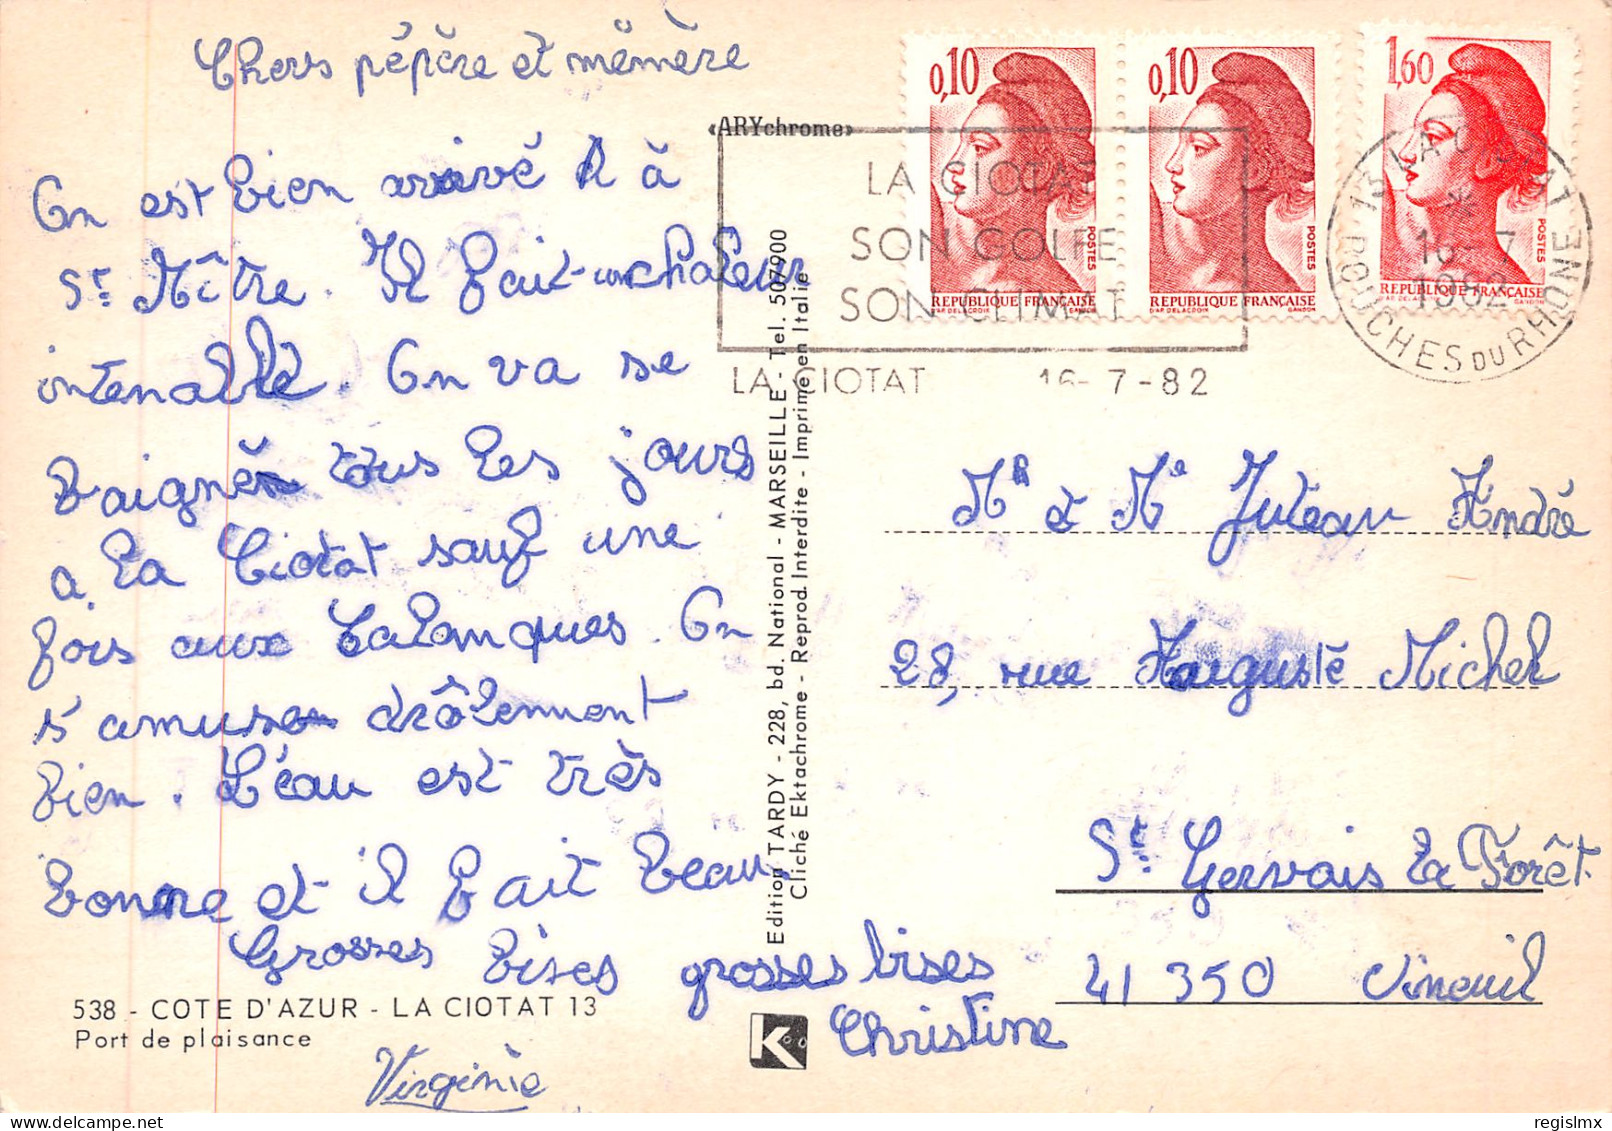 Chers pépère et mémère
On est bien arrivé à
St Mître. Il fait une chaleur
intenable. On va se
baigner tous les jours
a la Ciotat sauf une
fois aux Calanques. On
s'amuse drôlement
bien. L'éau est très
bonne et il fait beau
Grosses bises
grosses bises
Christine
Virginie
538 - COTE D'AZUR - LA CIOTAT 13
Port de plaisance
«ARYchrome»
Edition TARDY - 228, bd. National - MARSEILLE - Tel. 507900
Cliché Ektachrome - Reprod. Interdite - Imprimé en Italie
K
0,10
POSTES
REPUBLIQUE FRANÇAISE
D'AP. DELACROIX GANDON
0,10
POSTES
REPUBLIQUE FRANÇAISE
D'AP. DELACROIX GANDON
1,60
POSTES
REPUBLIQUE FRANÇAISE
D'AP. DELACROIX GANDON
LA CIOTAT
SON GOLFE
SON CLIMAT
LA CIOTAT 16-7-82
13 LA CIOTAT
BOUCHES DU RHONE
Mr et Me Juteau André
28, rue Auguste Michel
St Gervais la Forêt
41 350 Vineuil
regislmx